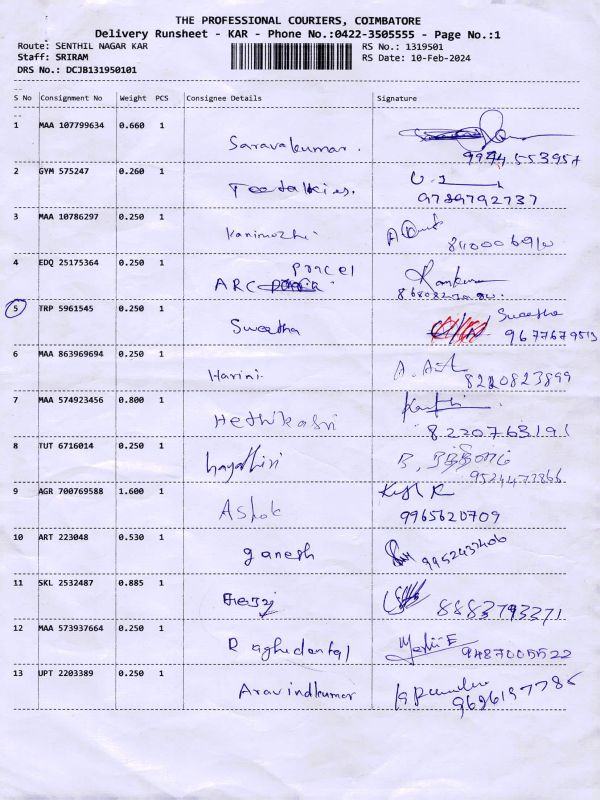 THE PROFESSIONAL COURIERS, COIMBATORE
Delivery Runsheet - KAR - Phone No.:0422-3505555 - Page No.:1
Route: SENTHIL NAGAR KAR RS No.: 1319501
Staff: SRIRAM RS Date: 10-Feb-2024
DRS No.: DCJB131950101
S No Consignment No Weight PCS Consignee Details Signature
1 MAA 107799634 0.660 1 Saravakumar.
2 GYM 575247 0.260 1
9789792737
3 MAA 10786297 0.250 1 Kanimozhi
4 EDQ 25175364 0.250 1 ARC Parcel
5 TRP 5961545 0.250 1 Swetha Swetha
9677679513
6 MAA 863969694 0.250 1 Harini
8220823899
7 MAA 574923456 0.800 1 Hethikasri
8220763191
8 TUT 6716014 0.250 1
9 AGR 700769588 1.600 1 Ashok
9965620709
10 ART 223048 0.530 1 ganesh
11 SKL 2532487 0.885 1 8883793271
12 MAA 573937664 0.250 1 9487005522
13 UPT 2203389 0.250 1 Aravindkumar